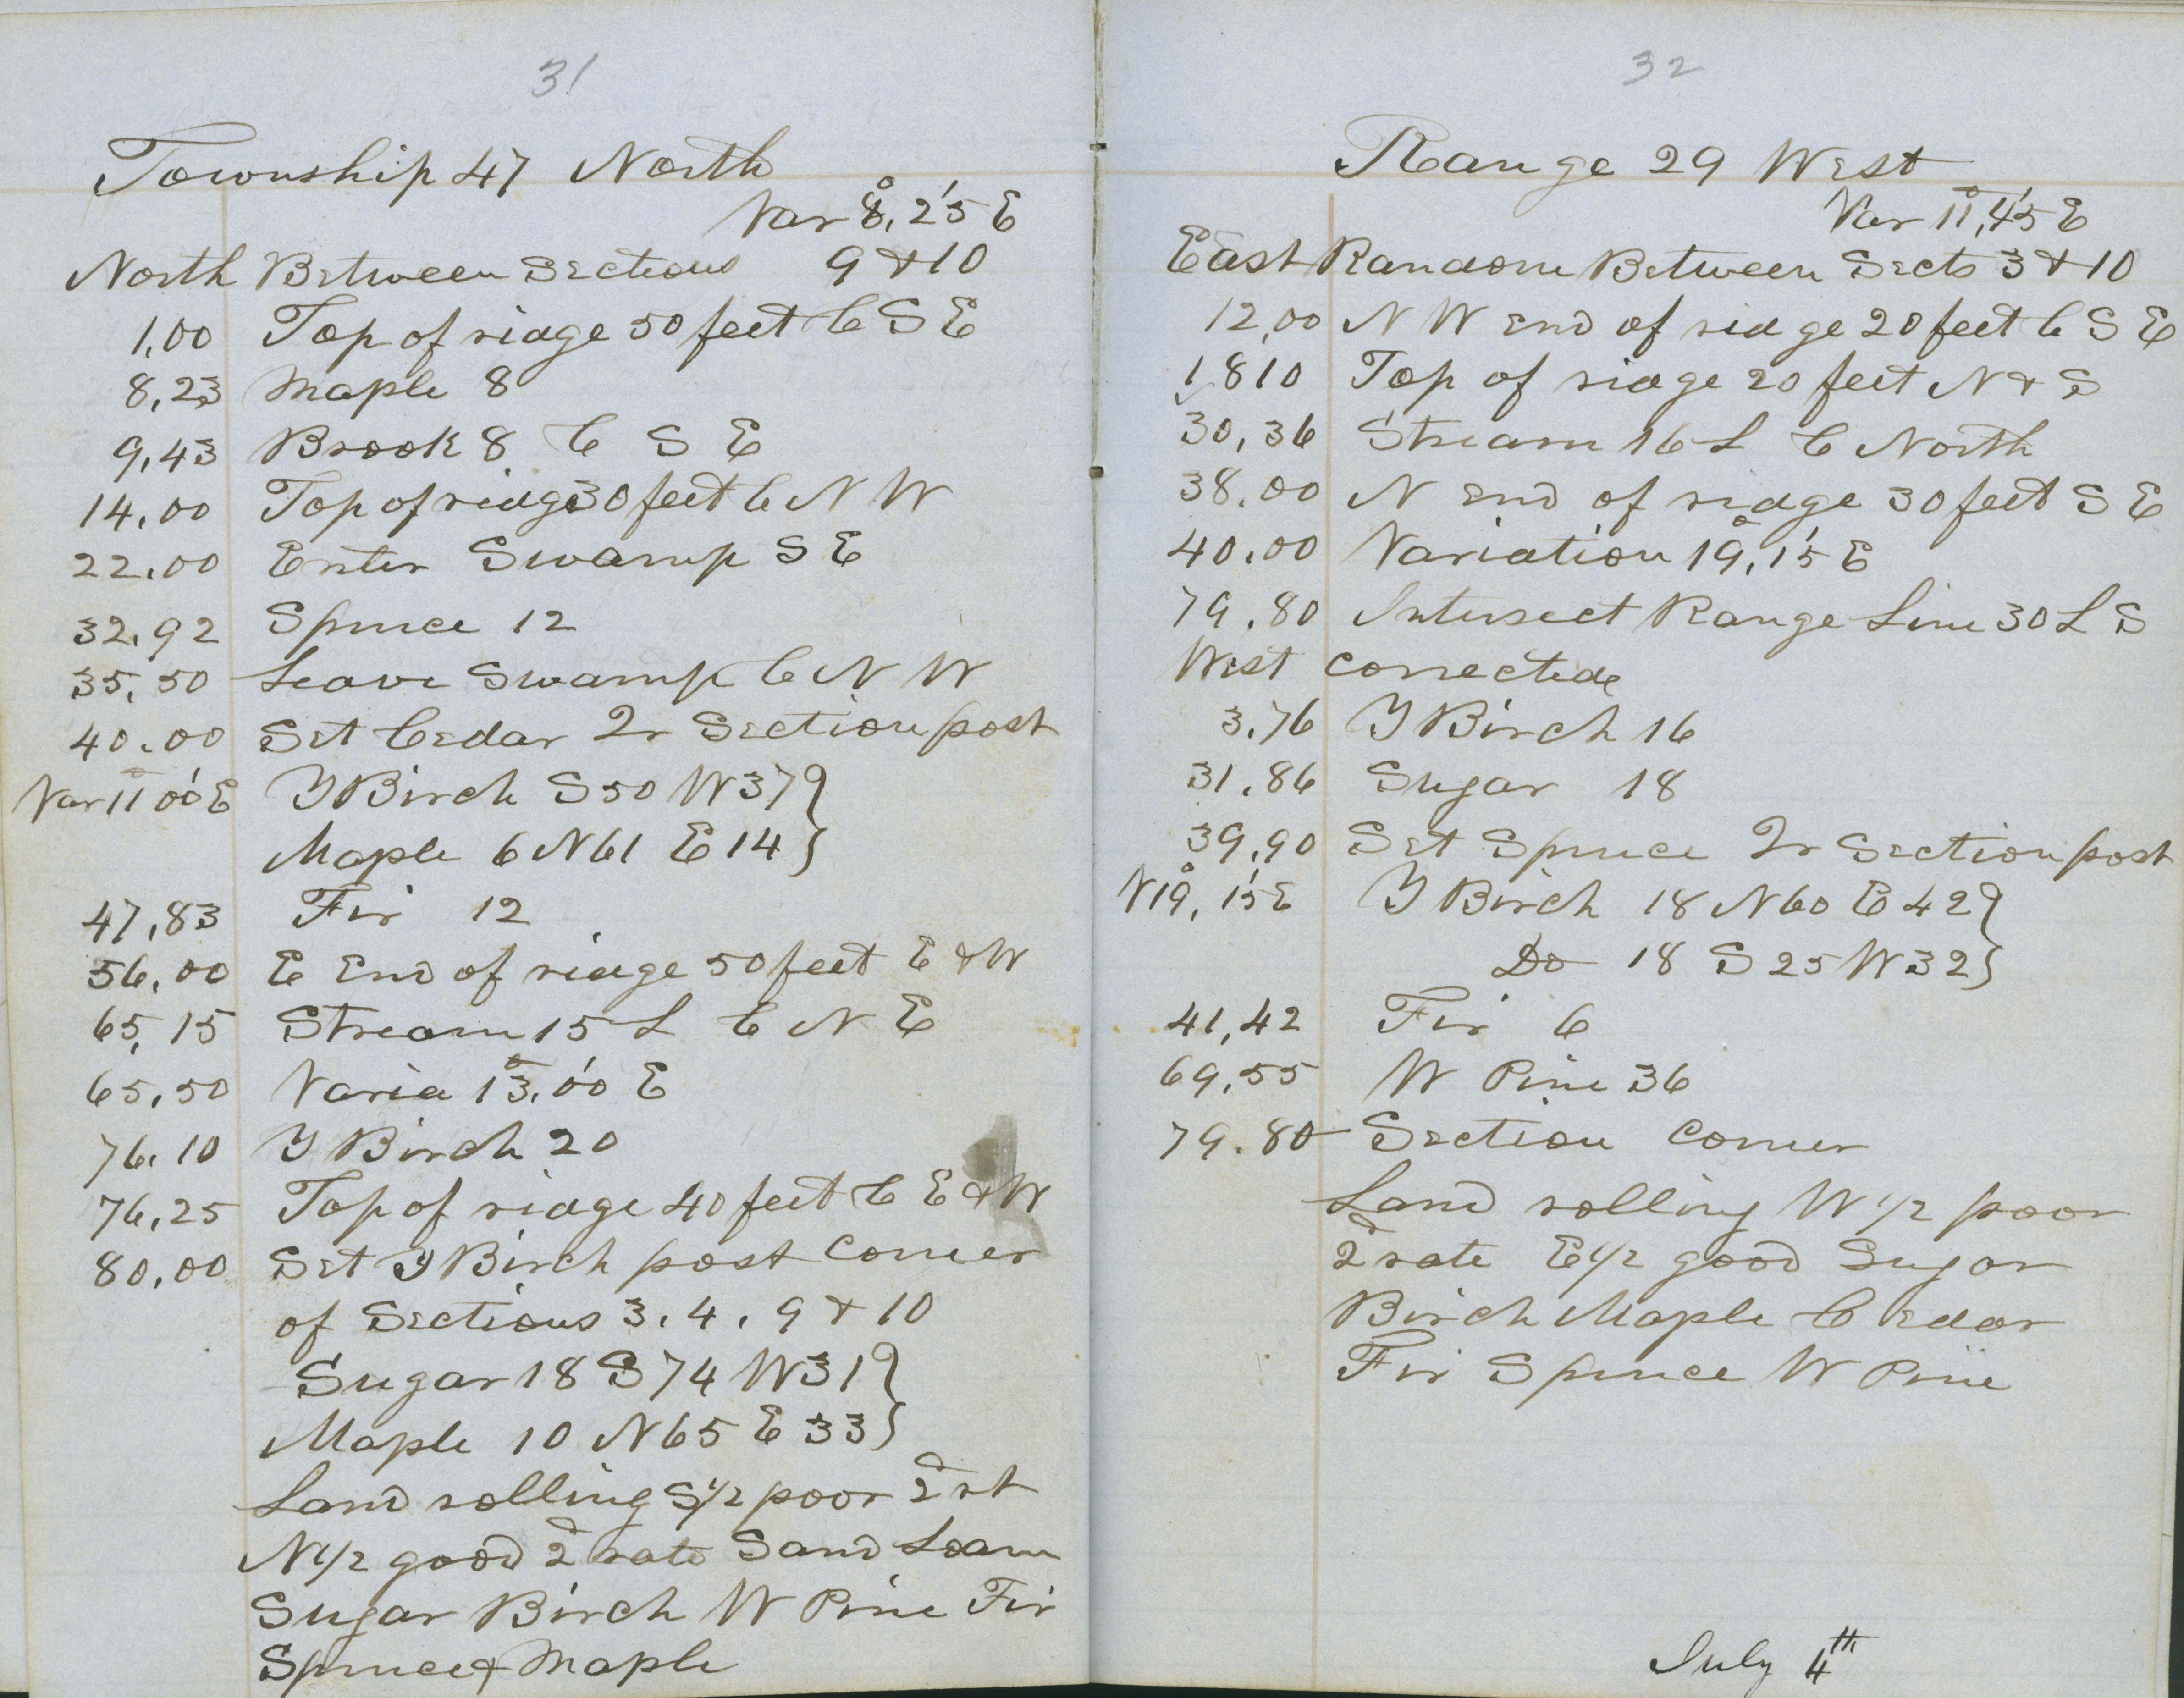 31
Township 47 North
Var 8°, 25' E
North Between Sections 9 & 10
1,00 Top of ridge 50 feet C S E
8,23 Maple 8
9,43 Brook 8 C S E
14,00 Top of ridge 30 feet C N W
22,00 Enter Swamp S E
32,92 Spruce 12
35,50 Leave Swamp C N W
40.00 Set Cedar Qr Section post
Var 11° 00' E Y Birch S 50 W 37 }
Maple 6 N 61 E 14 }
47,83 Fir 12
56,00 E End of ridge 50 feet E & W
65,15 Stream 15 L C N E
65,50 Varia 13°, 00' E
76,10 Y Birch 20
76,25 Top of ridge 40 feet C E & W
80,00 Set Y Birch post Corner
of Sections 3, 4, 9 & 10
Sugar 18 S 74 W 31 }
Maple 10 N 65 E 33 }
Land rolling S 1/2 poor 2d rt
N 1/2 good 2d rate Sand Loam
Sugar Birch W Pine Fir
Spruce & Maple
32
Range 29 West
Var 11°, 45' E
East Random Between Sects 3 & 10
12,00 N W End of ridge 20 feet C S E
1810 Top of ridge 20 feet N & S
30,36 Stream 16 L C North
38.00 N End of ridge 30 feet S E
40.00 Variation 19°, 15' E
79.80 Intersect Range Line 30 L S
West corrected
3.76 Y Birch 16
31.86 Sugar 18
39,90 Set Spruce Qr Section post
V 19°, 15' E Y Birch 18 N 60 E 42 }
Do 18 S 25 W 32 }
41,42 Fir 6
69,55 W Pine 36
79.80 Section Corner
Land rolling W 1/2 poor
2d rate E 1/2 good Sugar
Birch Maple Cedar
Fir Spruce W Pine
July 4th